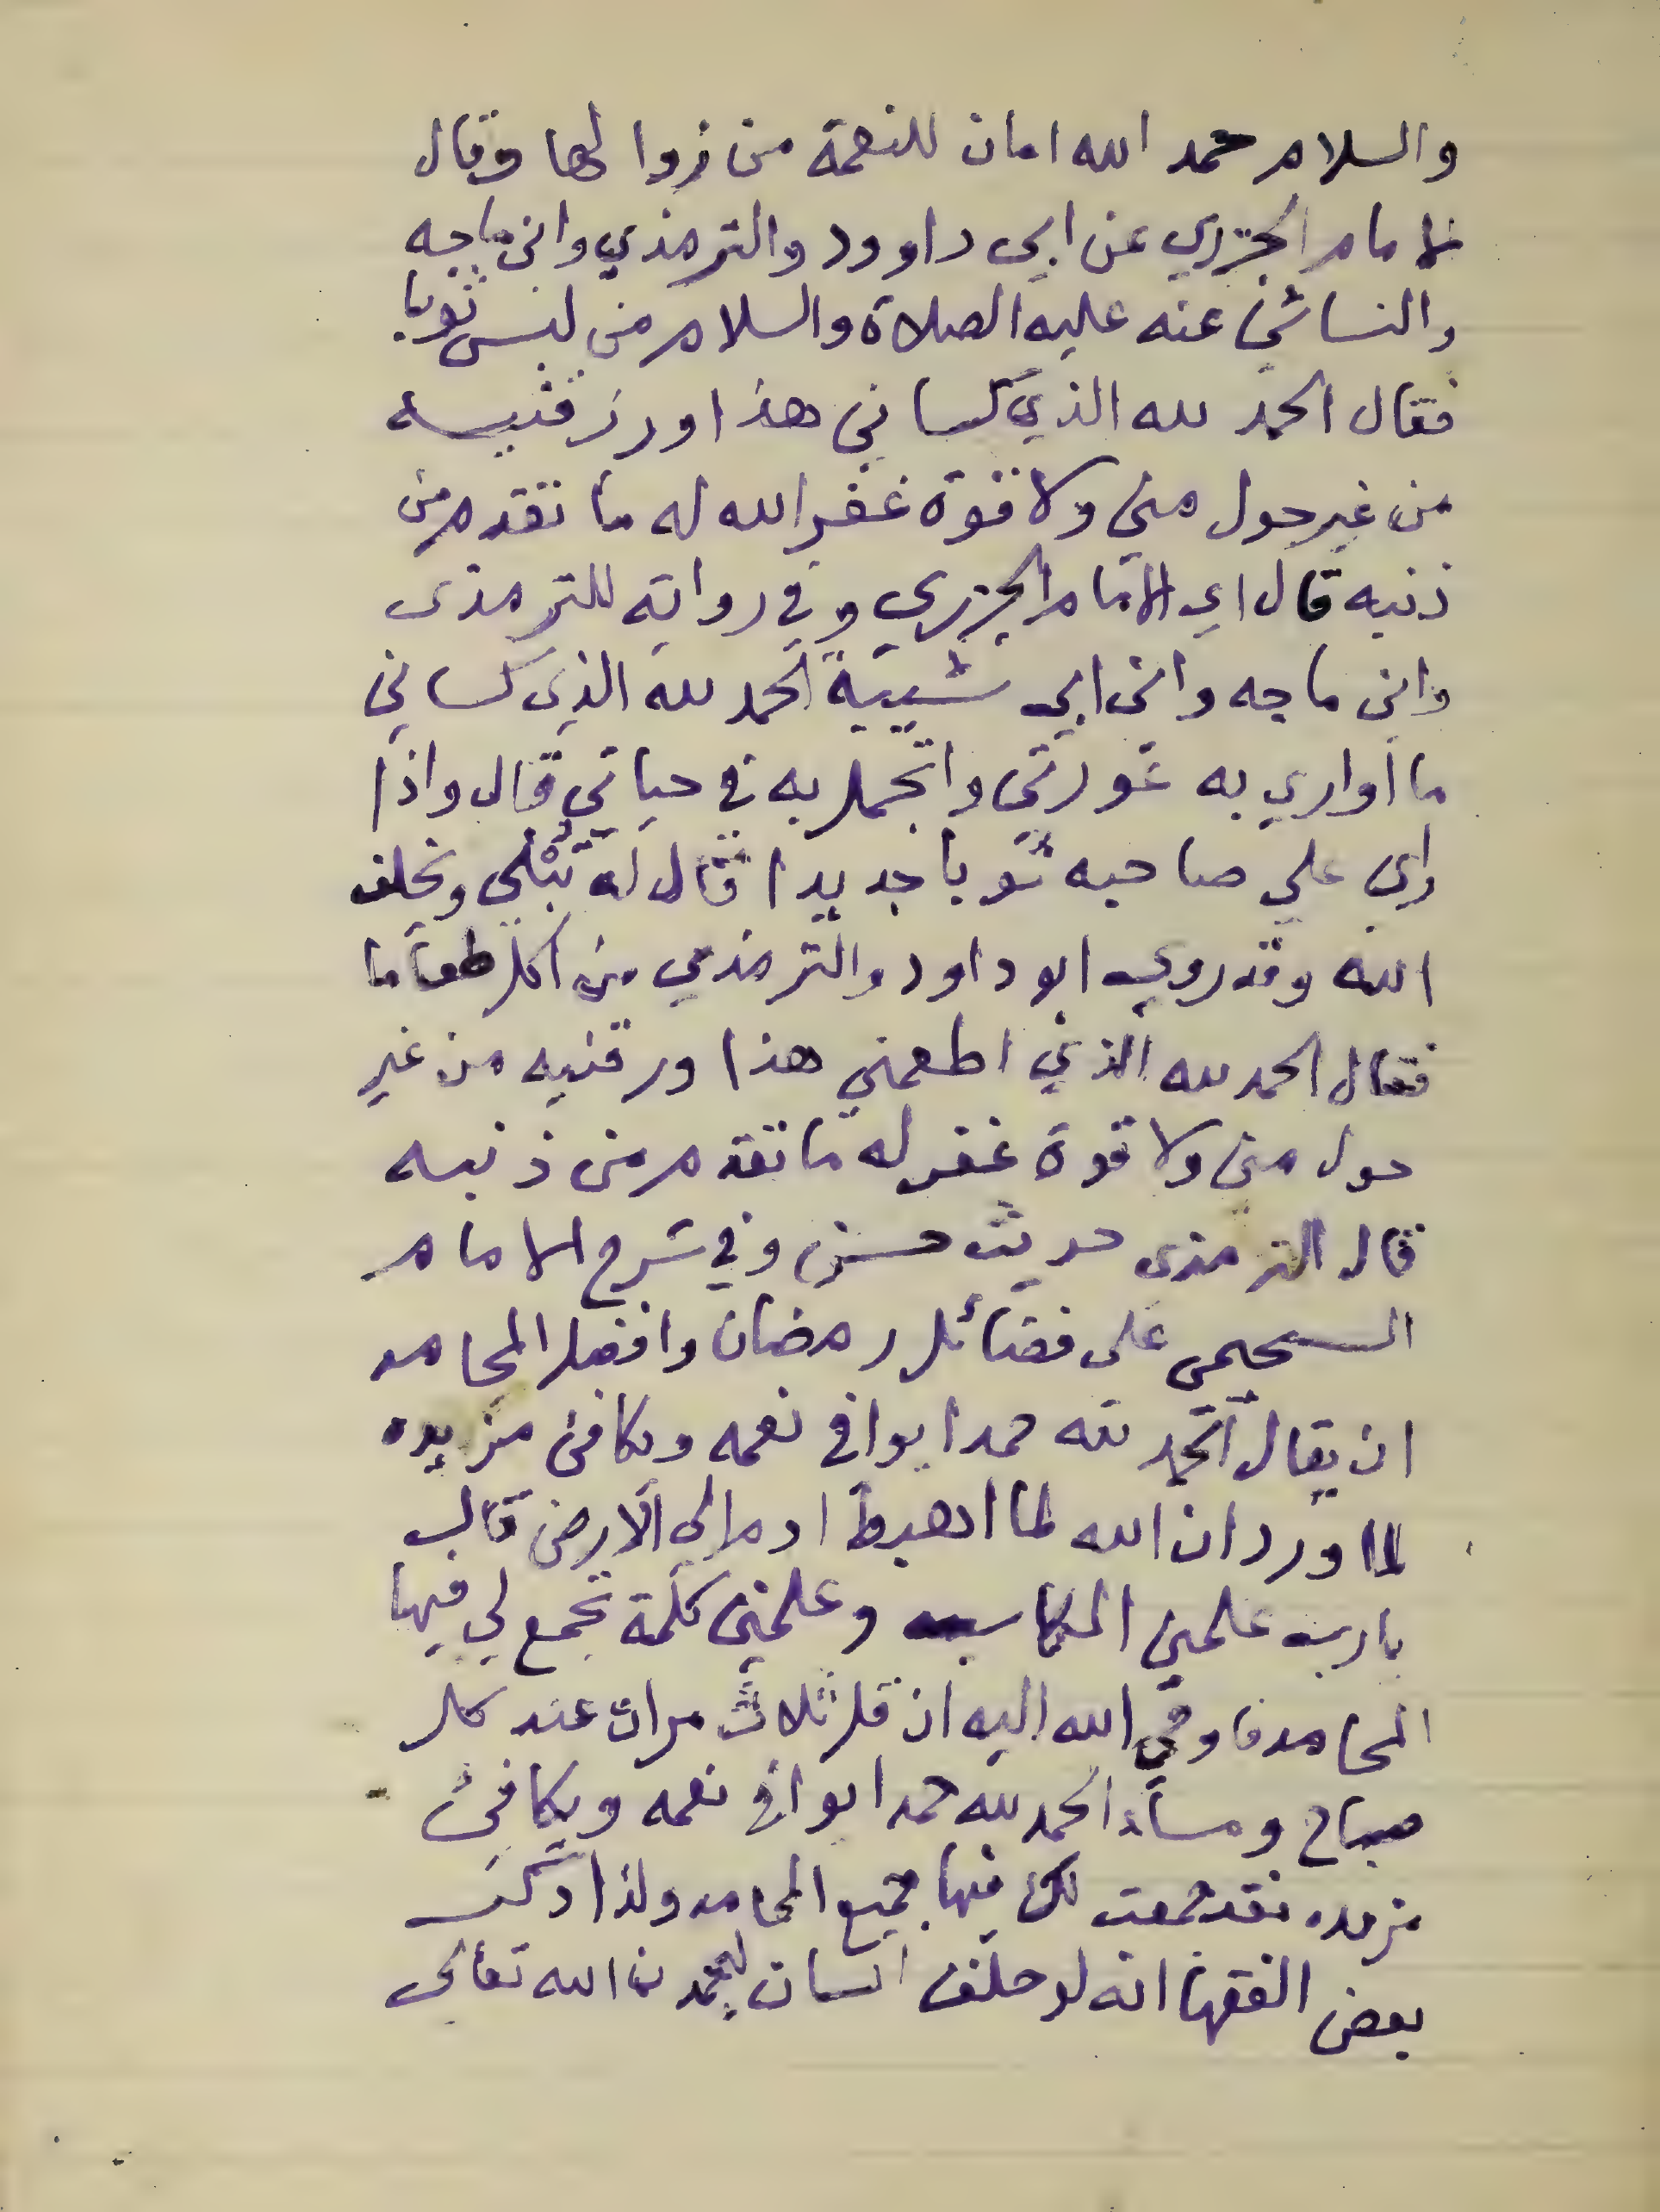 والسلام حمد الله امان للنعمة من زوالها وقال
الامام الجزري عن ابي داوود والترمذي وابن ماجه
والنسائي عنه عليه الصلاة والسلام من لبس ثوبا
فقال الحمد لله الذي كساني هذا ورزقنيه
من غير حول مني ولا قوة غفر الله له ما تقدم من
ذنبه قال اي الامام الجزري وفي رواية للترمذي
وابن ماجه وابن ابي شيبة الحمد لله الذي كساني
ما اواري به عورتي واتجمل به في حياتي قال واذا
راي علي صاحبه ثوبا جديدا قال له تبلي ويخلف
الله وقد روي ابو داود والترمذي من اكل طعاما
فقال الحمد لله الذي اطعمني هذا ورقنيه من غير
حول مني ولا قوة غفر له ما تقدم من ذنبه
قال الترمذي حديث حسن وفي شرح الامام
السحيمي على فضائل رمضان وافضل المحامد
ان يقال الحمد لله حمدا يوافي نعمه ويكافئ مزيده
لما ورد ان الله لما اهبط ادم الي الارض قال
يارب علمني المكاسب وعلمني كلمة تجمع لي فيها
المحامد فاوحي الله اليه ان قل ثلاث مرات عند كل
صباح ومساء الحمد لله حمدا يوافي نعمه ويكافئ
مزيده فقد جمعت لك فيها جميع المحامد ولذا ذكر
بعض الفقها انه لو حلف انسان ليحمدن الله تعالى